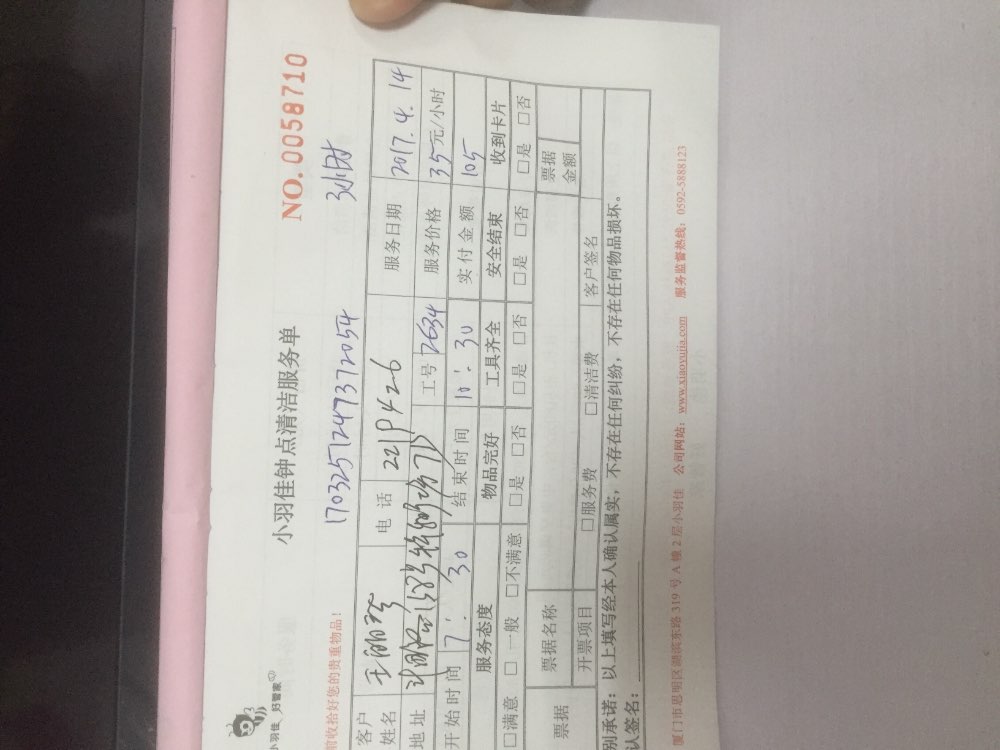 小羽佳 好管家
小羽佳钟点清洁服务单
NO. 0058710
前收拾好您的贵重物品!
170325124737 2054 3小时
客户姓名 王 电话 2219426 服务日期 2017.4.14
地址 工号 2634 服务价格 35元/小时
开始时间 7:30 结束时间 10:30 实付金额 105
服务态度 物品完好 工具齐全 安全结束 收到卡片
□满意 □一般 □不满意 □是 □否 □是 □否 □是 □否 □是 □否
票据 票据名称 票据金额
开票项目 □服务费 □清洁费 客户签名
别承诺:以上填写经本人确认属实,不存在任何纠纷,不存在任何物品损坏。
认签名:
厦门市思明区湖滨东路 319 号 A 幢 2 层小羽佳 公司网站:www.xiaoyujia.com 服务监督热线:0592-5888123